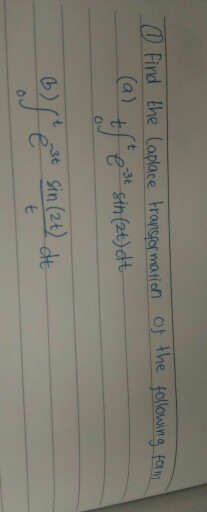 ① Find the Laplace transformation of the following form
(a) t ∫₀ᵗ e^{-3t} sin(2t) dt
(b) ∫₀ᵗ e^{-3t} \frac{sin(2t)}{t} dt